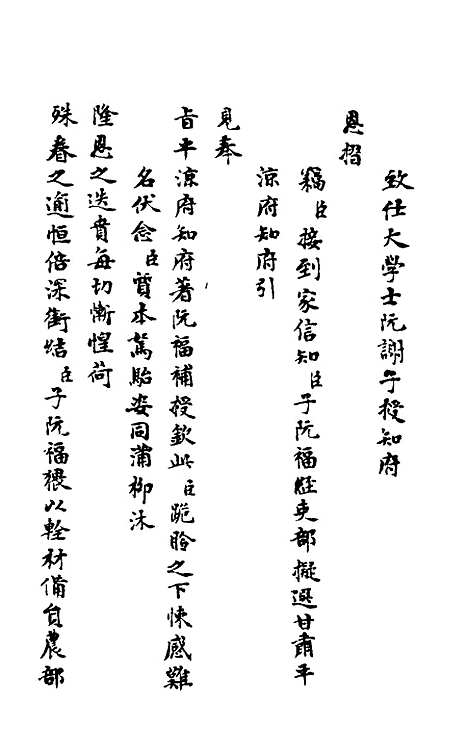 致仕大學士阮謝子授知府
恩摺
竊臣接到家信知臣子阮福經吏部擬選甘肅平
涼府知府引
見奉
旨平涼府知府著阮福補授欽此臣跪聆之下悚感難
名伏念臣質本駑駘姿同蒲柳沐
隆恩之迭賁每切慚惶荷
殊眷之逾恒倍深銜結臣子阮福猥以輇材備員農部